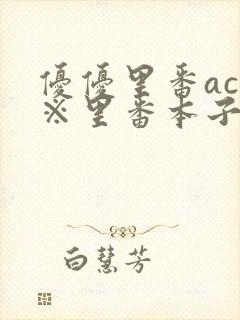 優優里番ac
※里番本子
白慧芳